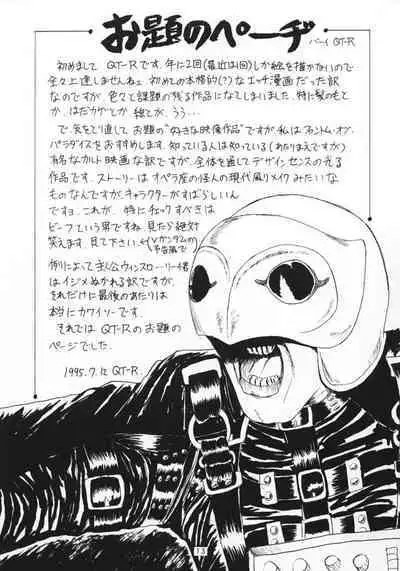 お題のペーヂ
バーイ QT-R
初めまして QT-Rです。年に2回(最近は1回)しか絵を描かないので
全々上達しませんねェ 初めての本格的(?)なエッチ漫画だった訳
なのですが、色々と課題の残る作品になってしまいました。特に髪の毛とか
とか、はだカゲとか 線とか、うう…
で、気をとり直して お題の"好きな映像作品"ですが、私はファントム・オブ・
パラダイスをおすすめします。知っている人は知っている(あたりまえですか)
有名なカルト映画な訳ですが、全体を通してデザインセンスの光る
作品です。ストーリーはオペラ座の怪人の現代風リメイクみたいな
ものなんですが、キャラクターがすばらしいん
ですヨ。これが、特にチェックすべきは
ビーフという男ですね 見たら絶対
笑えます。見て下さい。(Vガンダムの予告風で)
例によって主人公ウィンスローリーチ君
はイジメぬかれる訳ですが、
それだけに最後のあたりは
本当にカワイソーです。
それでは QT-Rのお題の
ページでした。
1995.7.12 QT-R.
13